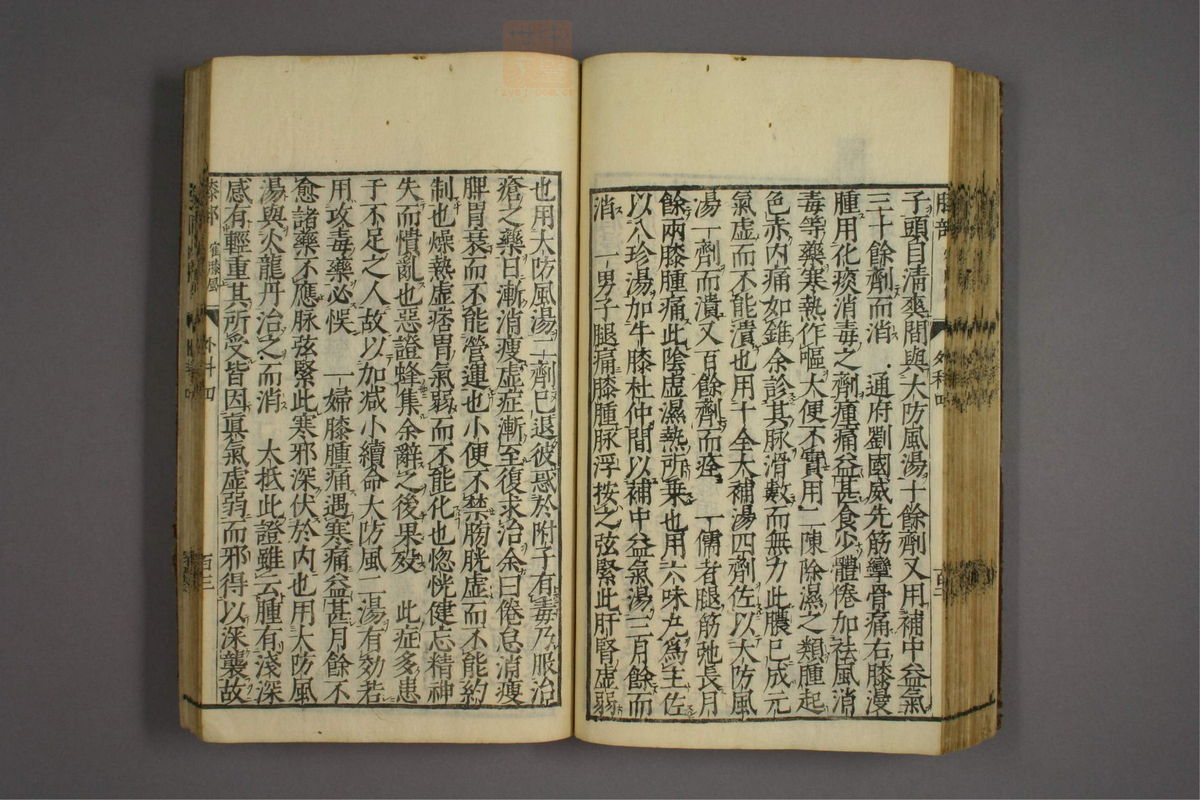 子頭目清爽間與大防風湯十餘劑又用補中益氣
三十餘劑而消 通府劉國威先筋攣骨痛右膝漫
腫用化痰消毒之劑腫痛益甚食少體倦加祛風消
毒等藥寒熱作嘔大便不實用二陳除濕之類腫起
色赤内痛如錐余診其脉滑數而無力此膿已成元
氣虚而不能潰也用十全大補湯四劑佐以大防風
湯一劑而潰又百餘劑而痊 一儒者腿筋弛長月
餘兩膝腫痛此陰虚濕熱所乗也用六味丸為主佐
以八珍湯加牛膝杜仲間以補中益氣湯三月餘而
消 一男子腿痛膝腫脉浮按之弦緊此肝腎虚弱
也用大防風湯二劑已退彼惑於附子有毒乃服治
瘡之藥日漸消瘦虚症漸至復求治余曰倦怠消瘦
脾胃衰而不能營運也小便不禁膀胱虚而不能約
制也燥熱虚痞胃氣弱而不能化也惚恍健忘精神
失而憒亂也惡證蜂集余辭之後果殁 此症多患
于不足之人故以加减小續命大防風二湯有効若
用攻毒藥必悮 一婦膝腫痛遇寒痛益甚月餘不
愈諸藥不應脉弦緊此寒邪深伏於内也用大防風
湯與火龍丹治之而消 大抵此證雖云腫有淺深
感有輕重其所受皆因真氣虚弱而邪得以深襲故
膝部 外科四 百三